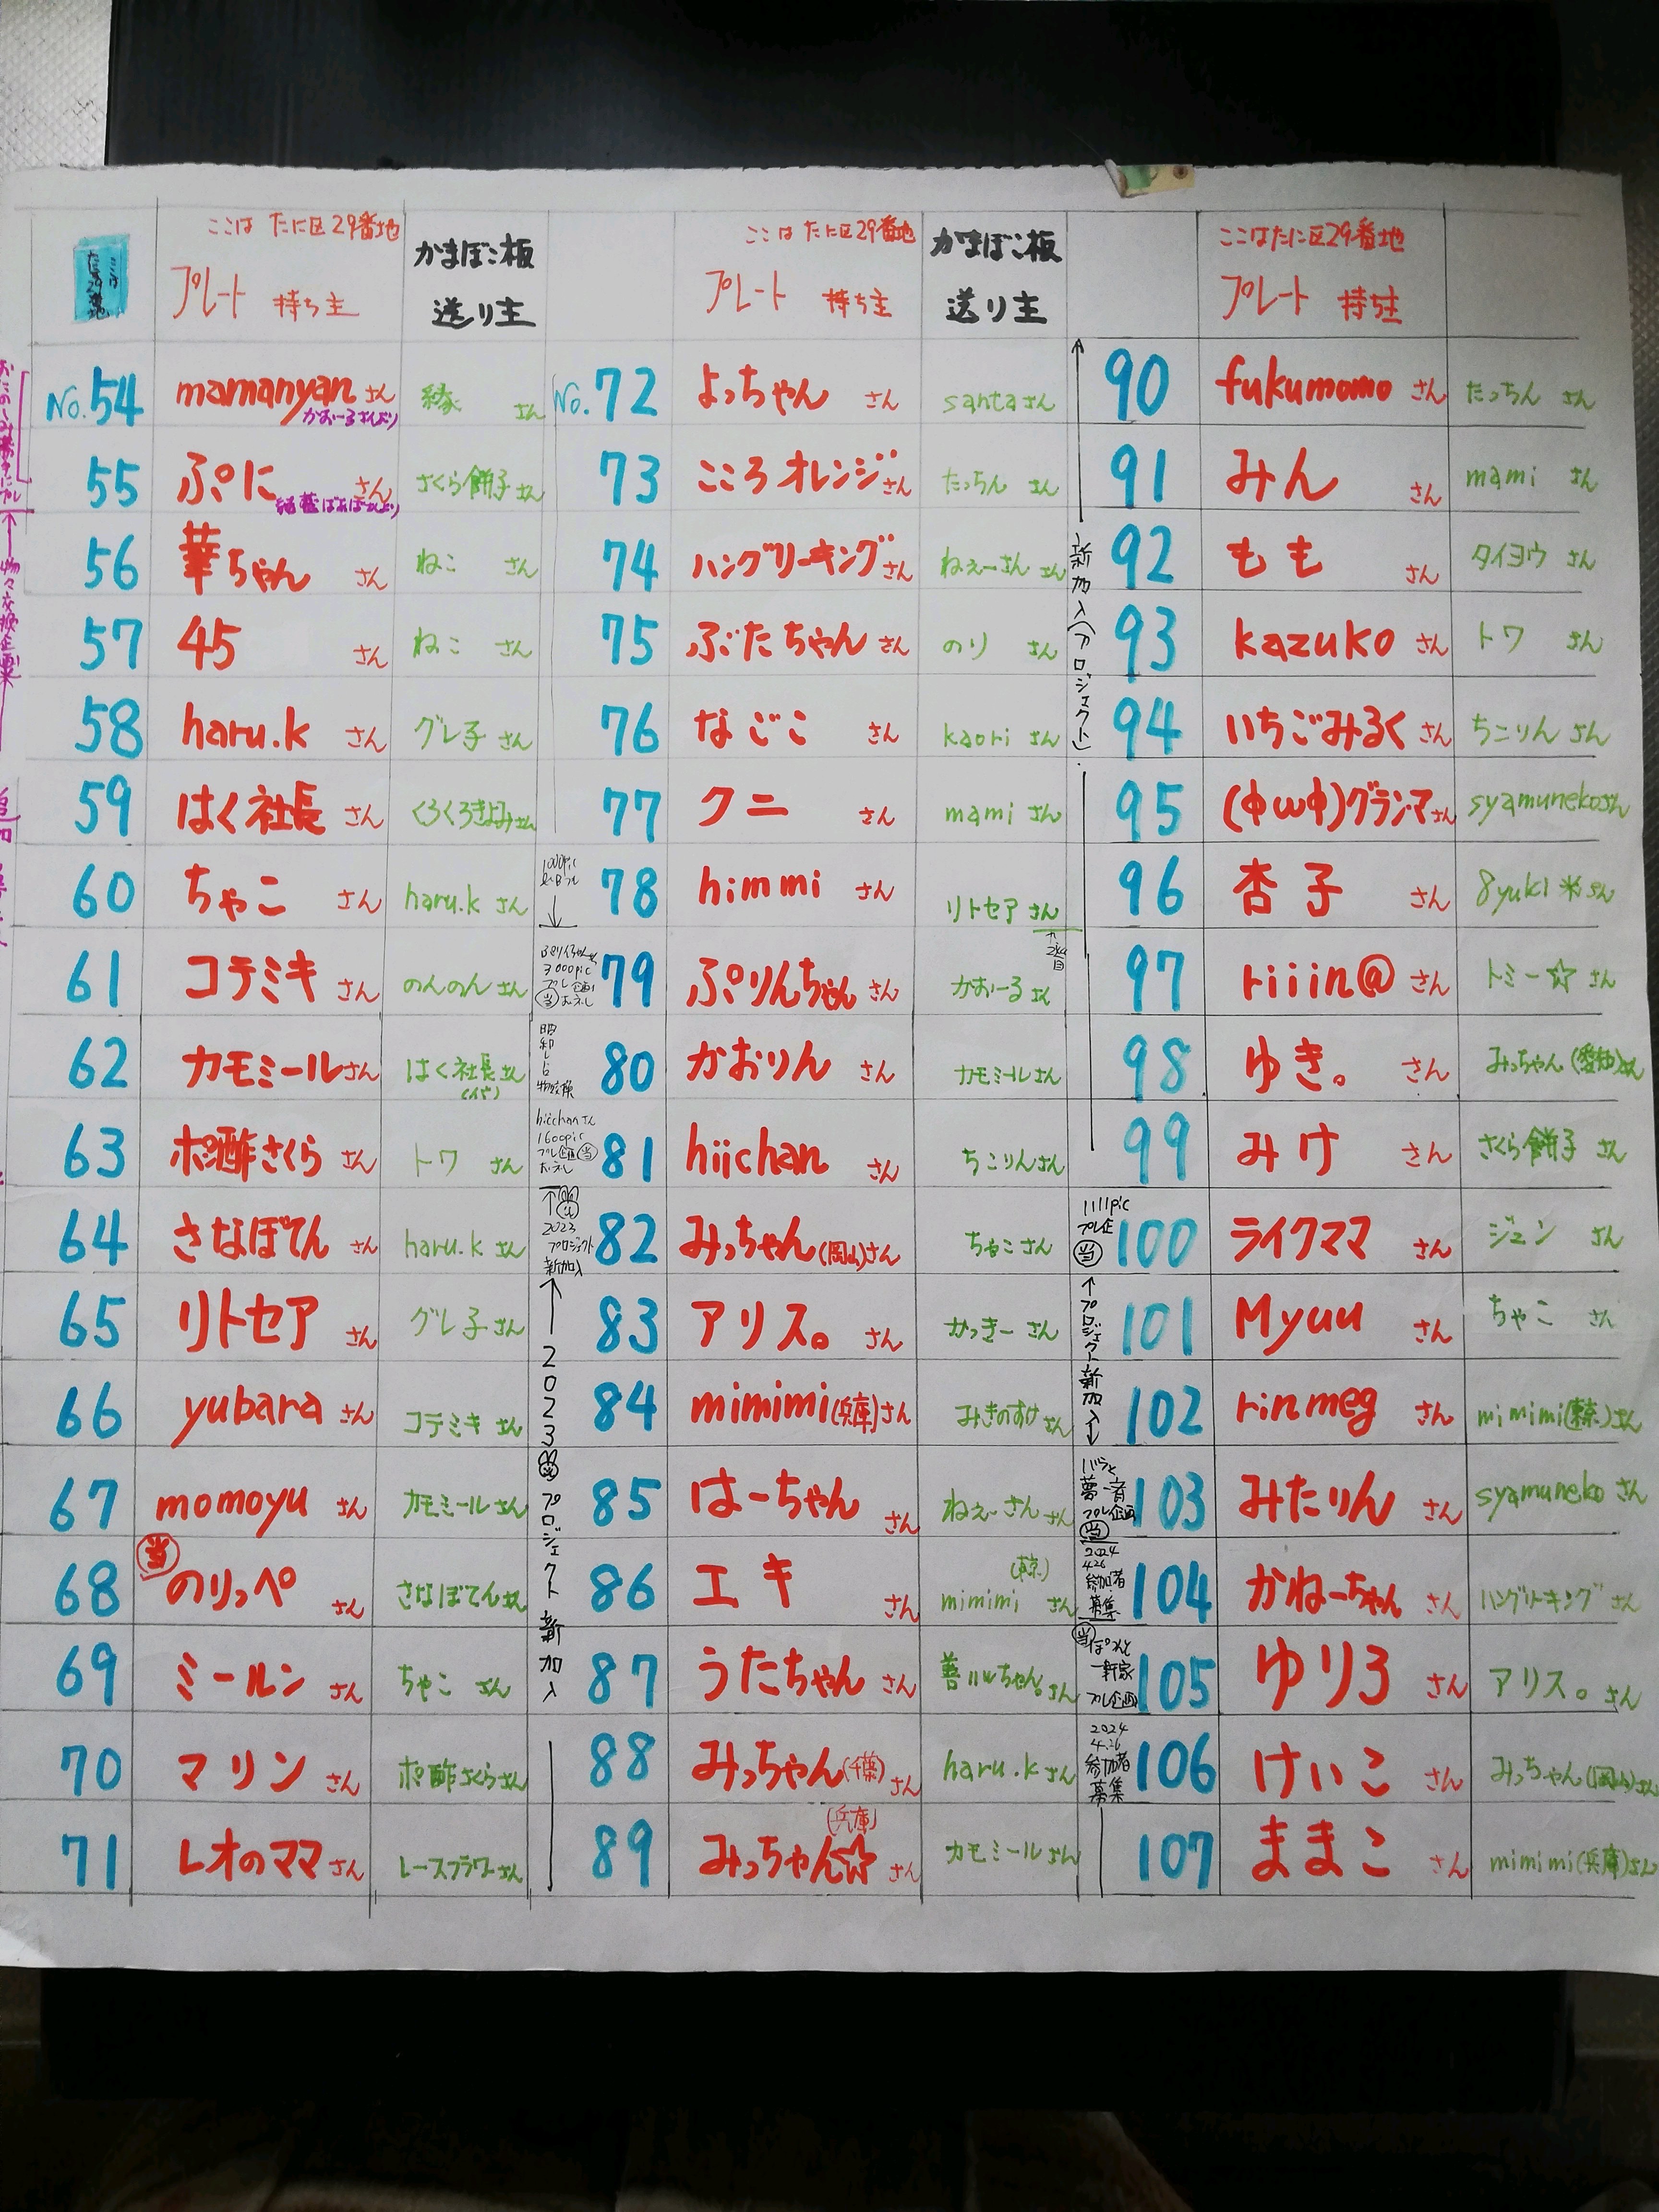 ここは たに区29番地
プレート 持ち主
かまぼこ板
送り主
No.54 mamanyanさん 縁さん
かおーるさんより
55 ぷにさん さくら餅子さん
56 華ちゃんさん ねこさん
57 45さん ねこさん
58 haru.kさん グレ子さん
59 はく社長さん くろくろきよみさん
60 ちゃこさん haru.kさん
61 コテミキさん のんのんさん
62 カモミールさん はく社長さん
63 ポン酢さくらさん トワさん
64 さなぼてんさん haru.kさん
65 リトセアさん グレ子さん
66 yubaraさん コテミキさん
67 momoyuさん カモミールさん
当
68 のりっぺさん さなぼてんさん
69 ミールンさん ちゃこさん
70 マリンさん ポン酢さくらさん
71 レオのママさん レースフラワーさん
ここは たに区29番地
プレート 持ち主
かまぼこ板
送り主
No.72 よっちゃんさん santaさん
73 こころオレンジさん たっちんさん
74 ハングリーキングさん ねぇーさんさん
75 ぶたちゃんさん のりさん
76 なごこさん kaoriさん
77 クニさん mamiさん
78 himmiさん リトセアさん
3000pic
79 ぷりんちゃんさん かおーるさん
昭和レトロ物々交換
80 かおりんさん カモミールさん
hiichanさん
1600pic
81 hiichanさん ちこりんさん
2023
プロジェクト
新加入
82 みっちゃん(岡山)さん ちゃこさん
2023 プロジェクト新加入
83 アリス。さん かっきーさん
84 mimimi(兵庫)さん みきのすけさん
85 はーちゃんさん ねぇーさんさん
86 エキさん mimimi(東京)さん
87 うたちゃんさん 善ルルちゃん。さん
88 みっちゃん(千葉)さん haru.kさん
89 みっちゃん☆(兵庫)さん カモミールさん
ここはたに区29番地
プレート 持ち主
新加入(プロジェクト)
90 fukumomoさん たっちんさん
91 みんさん mamiさん
92 ももさん タイヨウさん
93 kazukoさん トワさん
94 いちごみるくさん ちこりんさん
95 (ΦωΦ)グランマさん syamunekoさん
96 杏子さん 8yuki*さん
97 riiin@さん トミー☆さん
98 ゆき。さん みっちゃん(愛知)さん
99 みけさん さくら餅子さん
1111pic
プレ企
当
100 ライクママさん ジュンさん
プロジェクト新加入
101 Myuuさん ちゃこさん
102 rinmegさん mimimi(東京)さん
プレ企画
当
103 みたりんさん syamunekoさん
2024
4.26
参加者
募集
104 かねーちゃんさん ハングリーキングさん
当
プレ企画
105 ゆり3さん アリス。さん
2024
4.26
参加者
募集
106 けいこさん みっちゃん(岡山)さん
107 ままこさん mimimi(兵庫)さん